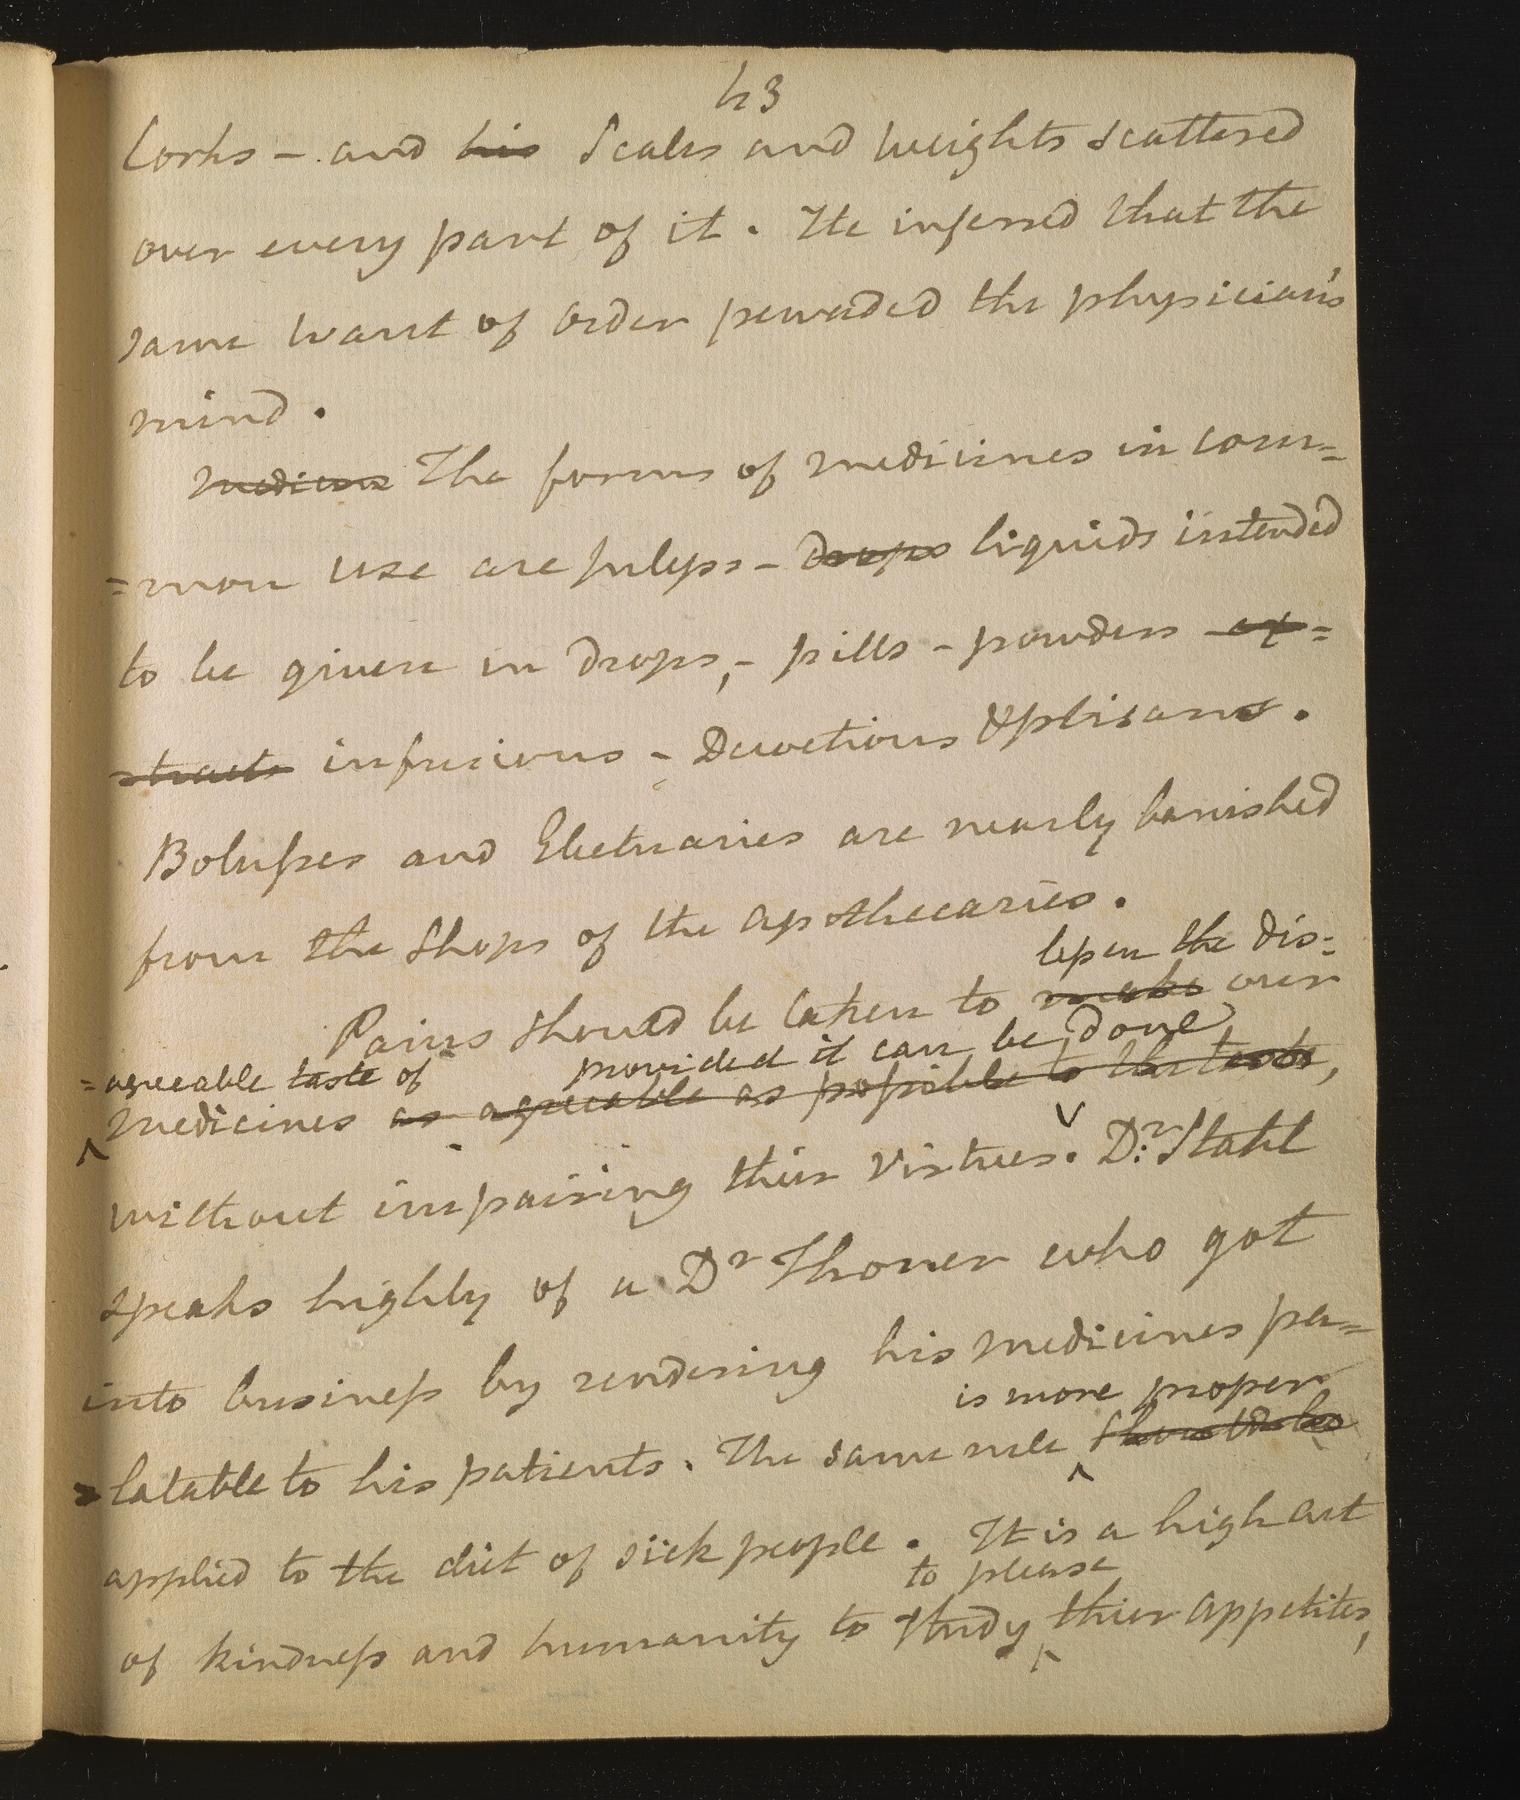 43
Corks – and his Scales and weights scattered
over every part of it. He inferred that the
same want of order pervaded the physician's
mind.
Medicines The forms of medicines in com=
=mon use are juleps – drops liquids intended
to be given in drops, – pills – powders – ex=
=tracts infusions – Decoctions & ptisans.
Bolusses and Electuaries are nearly banished
from the shops of the apothecaries.
lessen the dis=
Pains should be taken to make our
=agreeable taste of provided it can be done
medicines as agreeable as possible to the taste,
without impairing their virtues. Dr. Stahl
speaks highly of a Dr Thoner who got
into business by rendering his medicines pa=
is more proper
=latable to his patients. The same rule should be
applied to the diet of sick people. It is a high act
to please
of kindness and humanity to study their appetites,